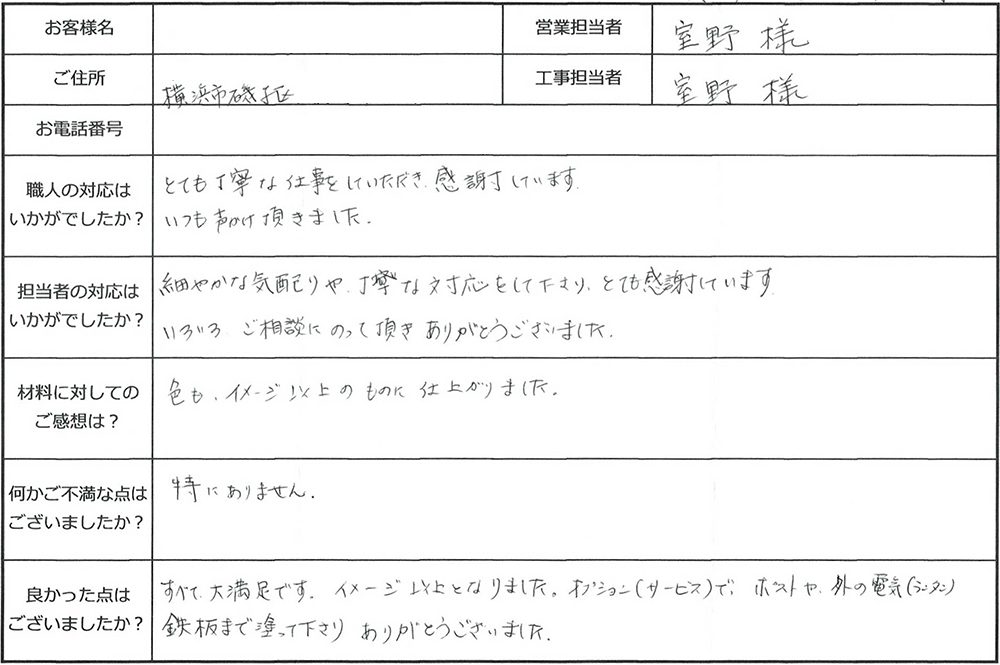 お客様名
営業担当者 室野 様
ご住所 横浜市磯子区
工事担当者 室野 様
お電話番号
職人の対応は
いかがでしたか？
とても丁寧な仕事をしていただき、感謝しています。
いつも声かけ頂きました。
担当者の対応は
いかがでしたか？
細やかな気配りや、丁寧な対応をして下さり、とても感謝しています。
いろいろ、ご相談にのって頂きありがとうございました。
材料に対しての
ご感想は？
色も、イメージ以上のものに仕上がりました。
何かご不満な点は
ございましたか？
特にありません。
良かった点は
ございましたか？
すべて、大満足です。イメージ以上となりました。オプション(サービス)で、ポストや、外の電気(ランタン)
鉄板まで塗って下さりありがとうございました。